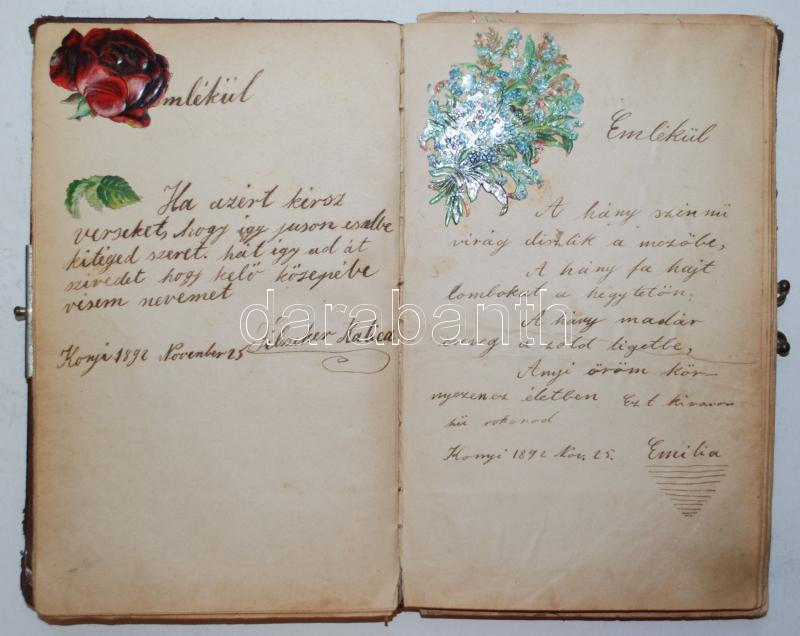 Emlékül
Ha azért kérsz
verseket, hogy igy juson eszedbe
ki téged szeret. hát igy ad át
szivedet hogy kellő közepébe
vésem nevemet
Katica
Konyi 1892 November 25
Emlékül
A hány szinnü
virág diszlik a mezöbe,
A hány fa hajt
lombokat a hegytetön,
A hány madár
zeng a zöld ligetbe,
Anyi öröm kör-
nyezenez életben Ezt kivanon
hü rokonod
Konyi 1892 Nov. 25. Emilia
darabanth